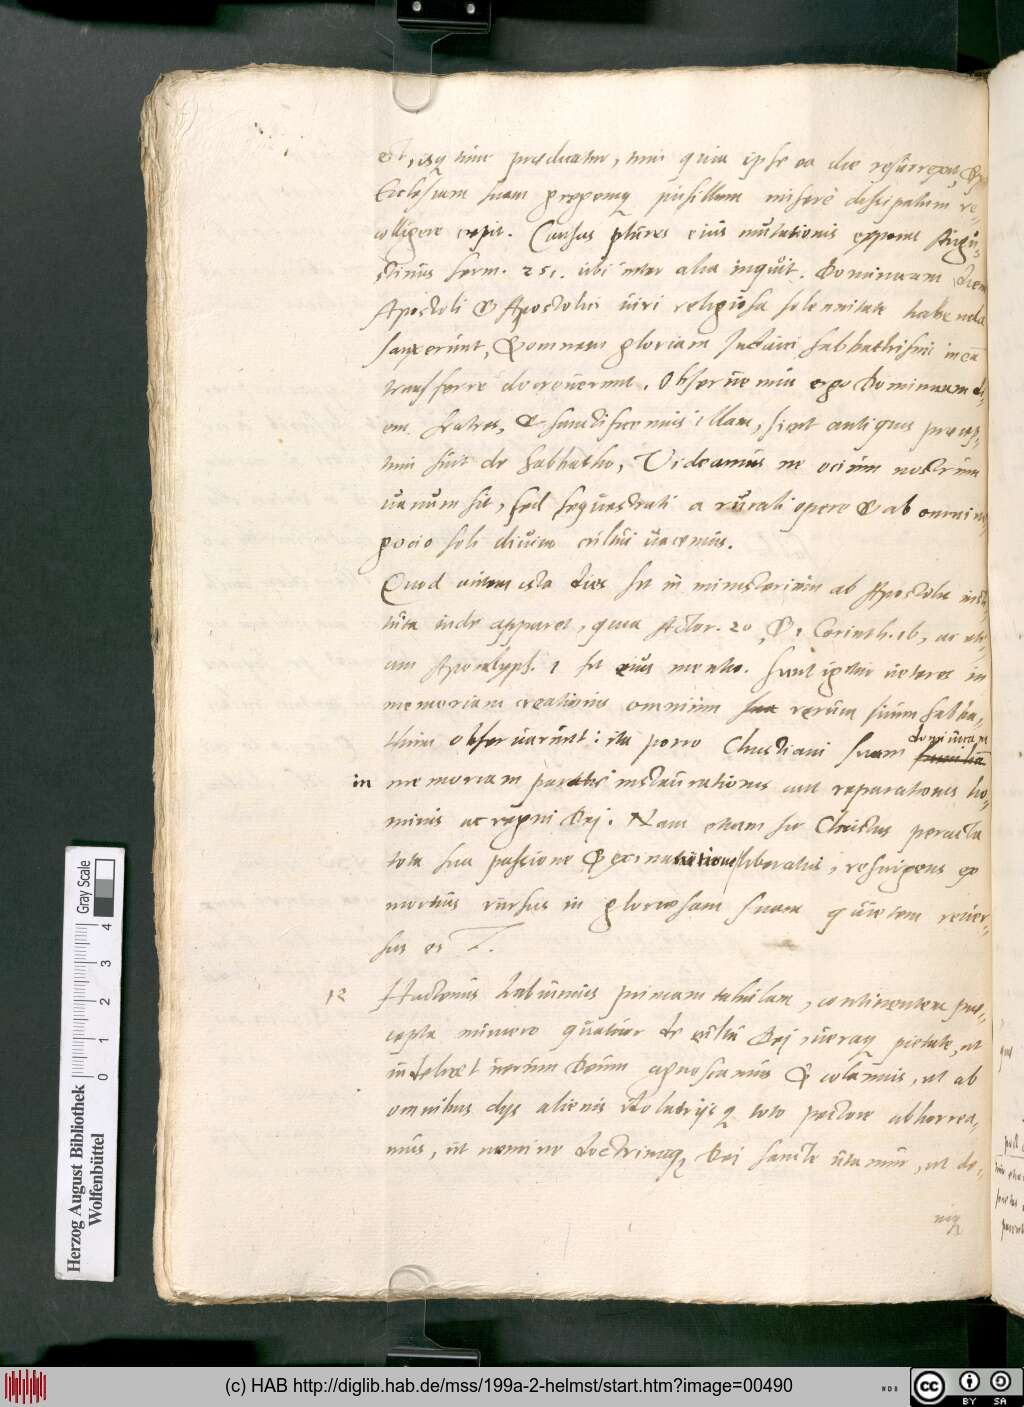 est, isq tum praedicatur, tum quia ipse ea die resurrexit, &
Ecclesiam suam gregemq pusillum miserè dissipatum re-
colligere cepit. Causas plures eius mutationis exponit Augu-
stinus serm. 251. ubi inter alia inquit. Dominicam diem
Apostoli & Apostolici uiri religiosa solennitate habendã
sanxerunt, & omnem gloriam Judaici sabbathismi in eã
transferre decreuerunt. Obseruemus ergo Dominicam di-
em fratres, & sanctificemus illam, sicut antiquis praecep-
tum fuit de sabbatho, Videamus ne ocium nostrum
uanum sit, sed sequestrati a rurali opere & ab omni ne-
gocio soli diuino cultui uacemus.
Quod autem ista dies sit in ministerium ab Apostolis insti-
tuta inde apparet, quia Actor. 20, & 1 Corinth. 16, ac eti-
am Apocalyps. 1 fit eius mentio. Sicut igitur ueteres in
memoriam creationis omnium rerum suum sabba-
thum obseruarunt: ita porro Christiani suam dominicam
in memoriam instaurationis aut reparationis ho-
minis ac regni Dei. Nam etiam sic Christus peracta
tota sua passione & exinanitione liberatus, resurgens ex
mortuis rursus in gloriosam suam quietem reuer-
sus est.
12 Hactenus habuimus primam tabulam, continentem prae-
cepta numero quatuor de cultu Dei ueraq pietate, ut
uidelicet uerum Deum agnoscamus & colamus, ut ab
omnibus dijs alienis idolatrijsq toto pectore abhorrea-
mus, ut nomine doctrinaq Dei sancte utamur, ut de-
niq
(c) HAB http://diglib.hab.de/mss/199a-2-helmst/start.htm?image=00490
Herzog August Bibliothek
Wolfenbüttel
0 1 2 3 4
Gray Scale
NDB
cc BY SA